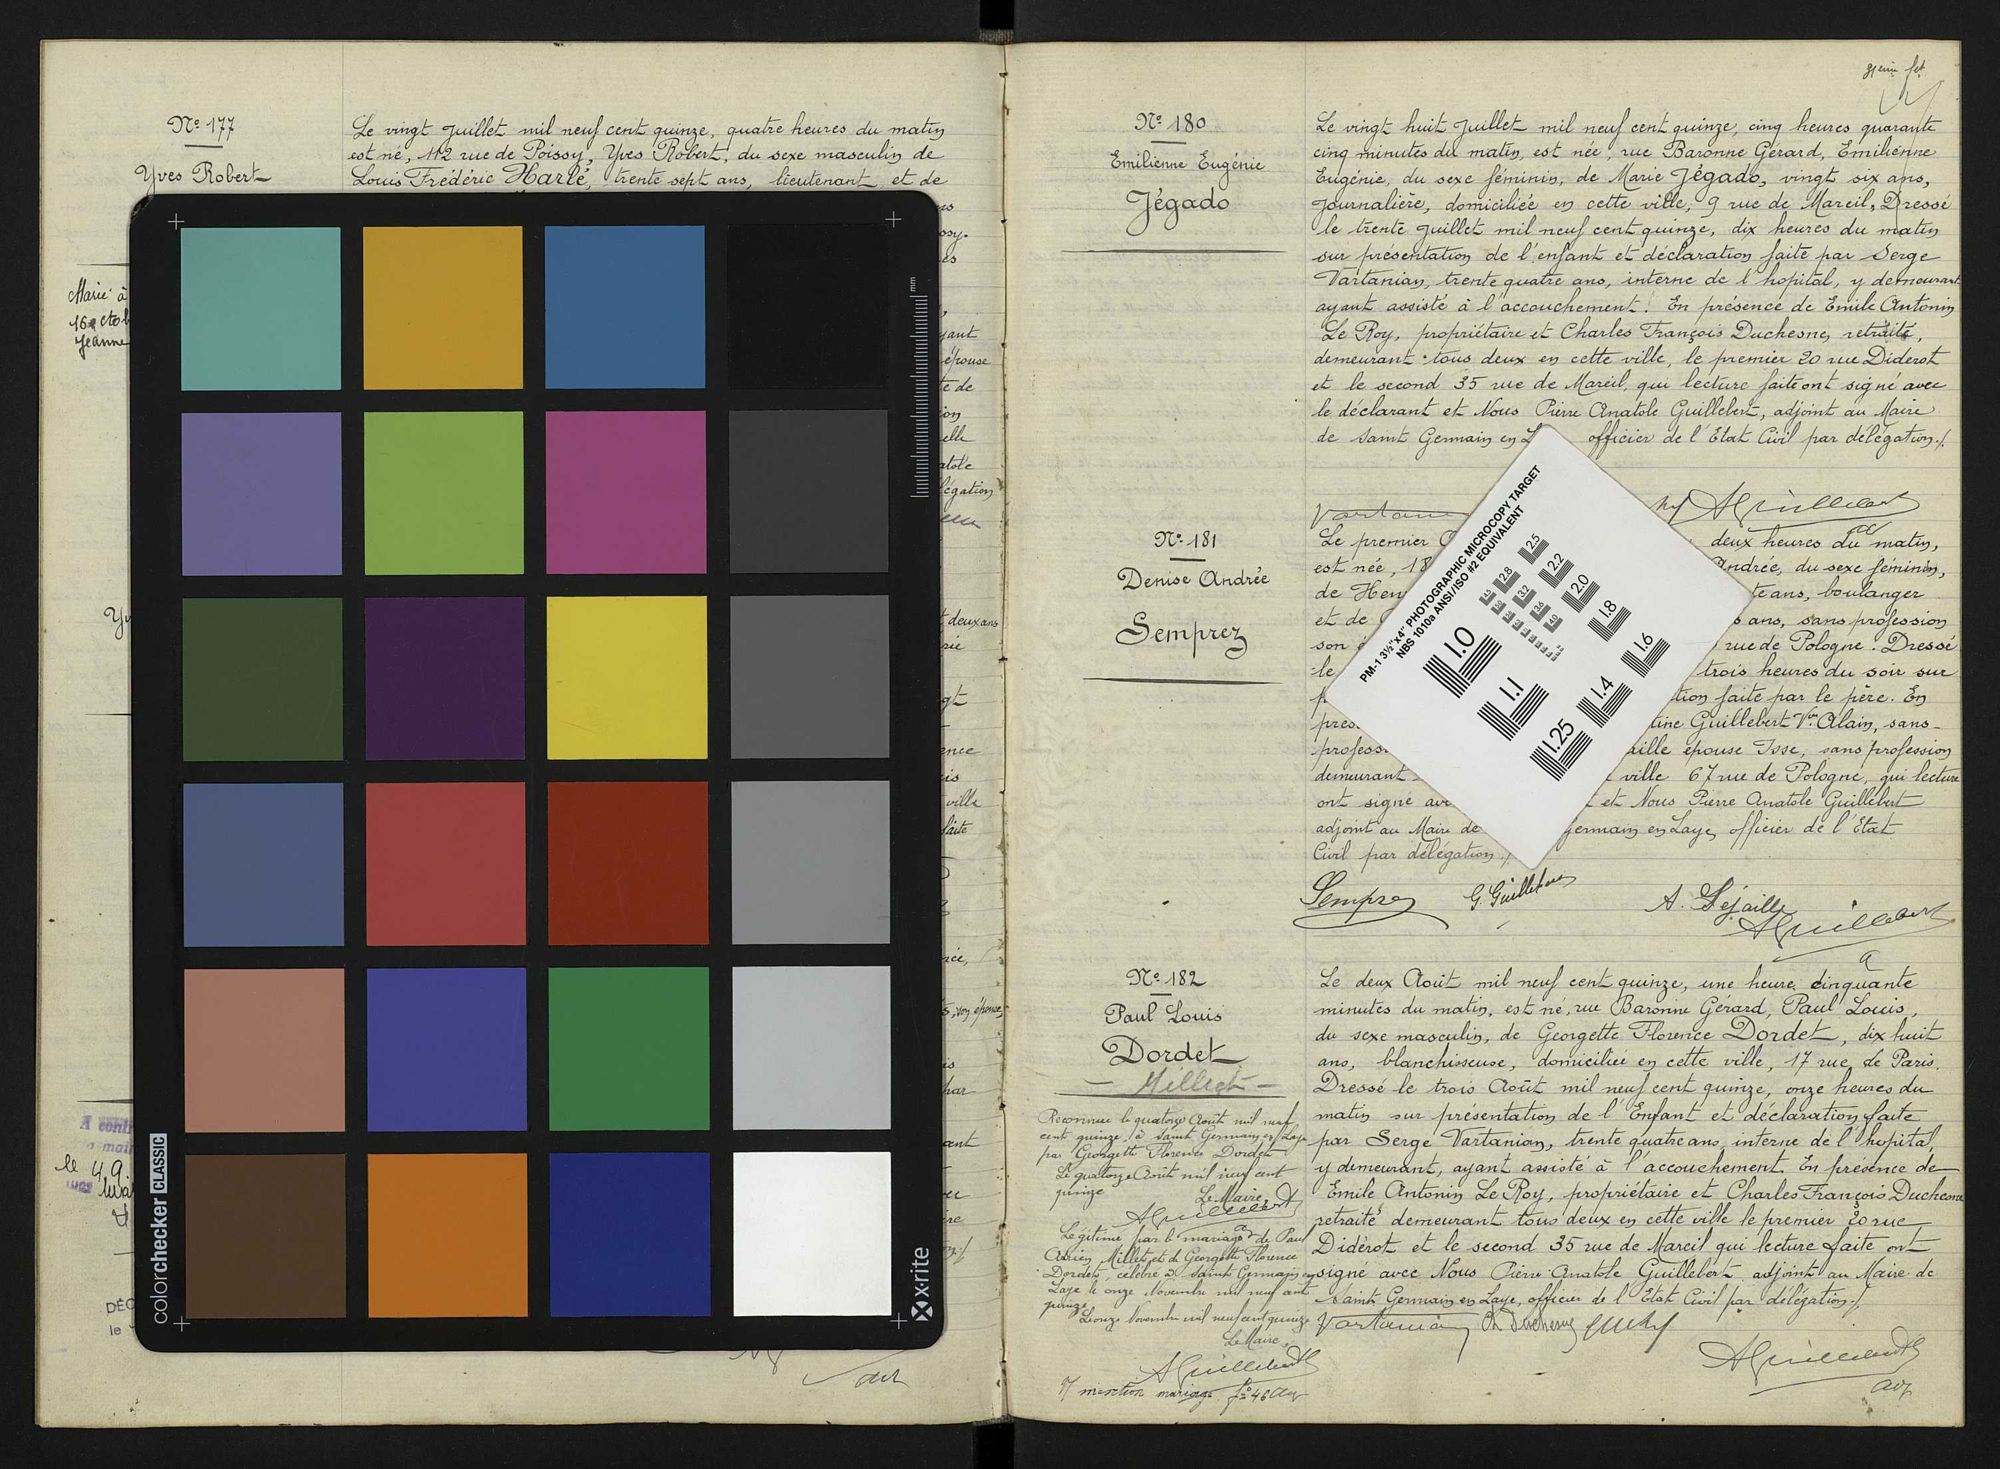 Nº 177
Yves Robert
Le vingt Juillet mil neuf cent quinze, quatre heures du matin
est né, 112 rue de Poissy, Yves Robert, du sexe masculin de
Louis Frédéric Harlé, trente sept ans, lieutenant et de
Marié à
Jeanne
épouse
te de
égation
deux ans
ville
faite
son épouse
par
le 4 9
DÉC
le
colorchecker CLASSIC
x-rite
mm
Nº 180
Emilienne Eugénie
Jégado
Le vingt huit Juillet mil neuf cent quinze, cinq heures quarante
cinq minutes du matin, est née, rue Baronne Gérard, Emilienne
Eugénie, du sexe féminin, de Marie Jégado, vingt six ans,
Journalière, domiciliée en cette ville, 9 rue de Mareil. Dressé
le trente Juillet mil neuf cent quinze, dix heures du matin
sur présentation de l'enfant et déclaration faite par Serge
Vartanian, trente quatre ans, interne de l'hopital, y demeurant
ayant assisté à l'accouchement. En présence de Emile Antonin
Le Roy, propriétaire et Charles François Duchesne, retraité,
demeurant tous deux en cette ville, le premier 20 rue Diderot
et le second 35 rue de Mareil, qui lecture faite ont signé avec
le déclarant et Nous Pierre Anatole Guillebert, adjoint au Maire
de Saint Germain en L officier de l'Etat Civil par délégation./.
AGuillebert
Nº 181
Denise Andrée
Semprez
Le premier deux heures du matin,
est née, 18 Andrée, du sexe féminin,
de Hen te ans, boulanger
et de s ans, sans profession
son é rue de Pologne. Dressé
le trois heures du soir sur
p tion faite par le père. En
prés tine Guillebert Vve Alain, sans
profess aille épouse Isse, sans profession
demeurant ville 67 rue de Pologne, qui lecture
ont signé av et Nous Pierre Anatole Guillebert
adjoint au Maire de Germain en Laye, officier de l'Etat
Civil par délégation ./.
Semprez G. Guillebert A. Lejaille
AGuillebert
PM-1 3½"x4" PHOTOGRAPHIC MICROCOPY TARGET
NBS 1010a ANSI/ISO #2 EQUIVALENT
1.0
1.1
1.25
1.4
1.6
1.8
2.0
2.2
2.5
2.8
3.2
3.6
4.0
Nº 182
Paul Louis
Dordet
- Millet -
Le deux Août mil neuf cent quinze, une heure cinquante
minutes du matin, est né, rue Baronne Gérard, Paul Louis,
du sexe masculin, de Georgette Florence Dordet, dix huit
ans, blanchisseuse, domiciliée en cette ville, 17 rue de Paris.
Dressé le trois Août mil neuf cent quinze, onze heures du
matin sur présentation de l'Enfant et déclaration faite
par Serge Vartanian, trente quatre ans, interne de l'hopital,
y demeurant, ayant assisté à l'accouchement. En présence de
Emile Antonin Le Roy, propriétaire et Charles François Duchesne
retraité demeurant tous deux en cette ville le premier 20 rue
Diderot et le second 35 rue de Mareil qui lecture faite ont
signé avec Nous Pierre Anatole Guillebert adjoint au Maire de
Saint Germain en Laye, officier de l'Etat Civil par délégation./.
Vartanian Ch Duchesne
AGuillebert
adj
Reconnu le quatorze Août mil neuf
cent quinze à Saint Germain en Laye
par Georgette Florence Dordet
Le quatorze Août mil neuf cent
quinze
Le Maire,
AGuillebert
Légitimé par le mariage de Paul
Adrien Millet et de Georgette Florence
Dordet, célébré à Saint Germain en
Laye le onze Novembre mil neuf cent
quinze
Le onze Novembre mil neuf cent quinze
Le Maire,
AGuillebert
mention mariage fº 46